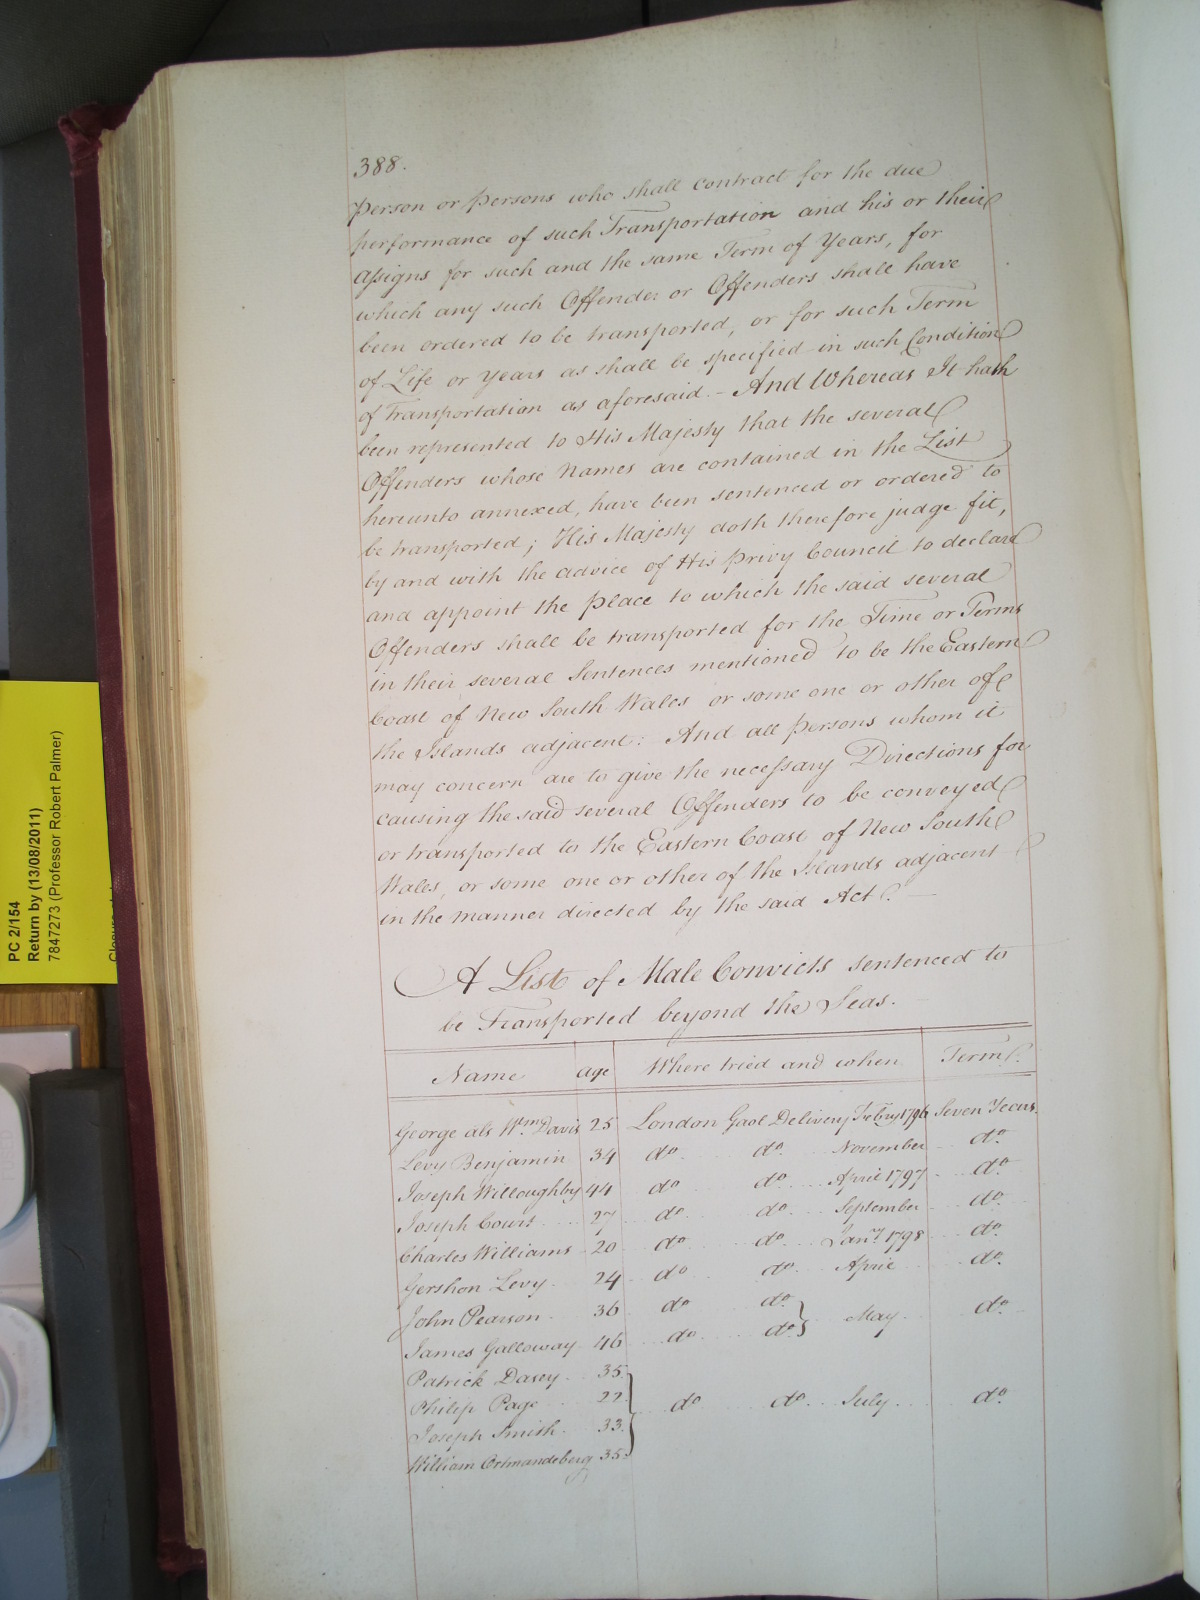 388.
Person or Persons who shall contract for the due
performance of such Transportation and his or their
assigns for such and the same Term of Years, for
which any such Offender or Offenders shall have
been ordered to be transported, or for such Term
of Life or Years as shall be specified in such Condition
of Transportation as aforesaid. - And Whereas It hath
been represented to His Majesty that the several
Offenders whose Names are contained in the List
hereunto annexed, have been sentenced or ordered to
be transported; His Majesty doth therefore judge fit,
by and with the advice of His Privy Council to declare
and appoint the Place to which the said several
Offenders shall be transported for the Time or Terms
in their several Sentences mentioned to be the Eastern
Coast of New South Wales or some one or other of
the Islands adjacent: And all Persons whom it
may concern are to give the necessary Directions for
causing the said several Offenders to be conveyed
or transported to the Eastern Coast of New South
Wales, or some one or other of the Islands adjacent
in the manner directed by the said Act.
A List of Male Convicts sentenced to
be Transported beyond the Seas.
Name age Where tried and when Term
George als Wm Davis 25 London Gaol Delivery Febry 1796 Seven Years.
Levy Benjamin 34 do do November do
Joseph Willoughby 44 do do April 1797 do
Joseph Court 27 do do September do
Charles Williams 20 do do Jany 1798 do
Gershon Levy 24 do do April do
John Pearson 36 do do May do
James Galloway 46 do do
Patrick Dasey 35
Philip Page 22 do do July do
Joseph Smith 33
William Ortmandeberg 35
PC 2/154
Return by (13/08/2011)
7847273 (Professor Robert Palmer)